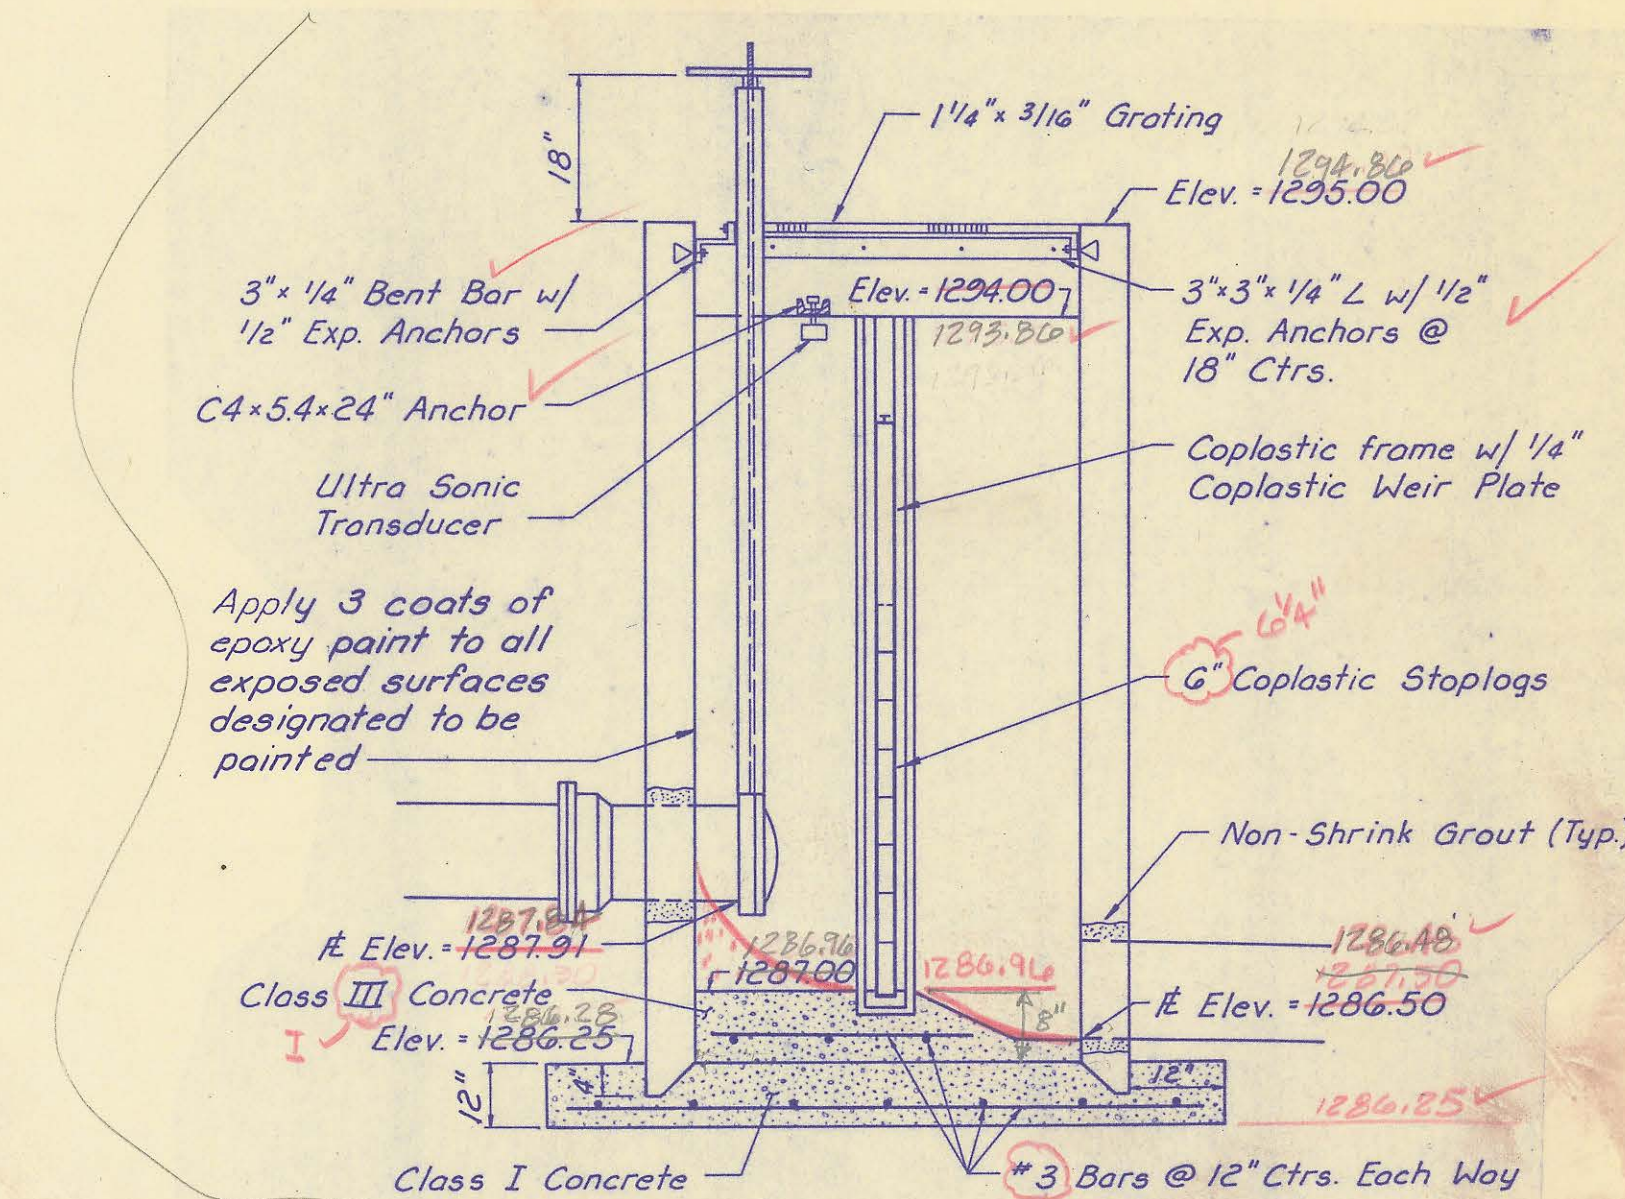 18"
1 1/4" x 3/16" Grating
1294.86
Elev. = 1295.00
3" x 1/4" Bent Bar w/
1/2" Exp. Anchors
Elev. = 1294.00
1293.86
3" x 3" x 1/4" L w/ 1/2"
Exp. Anchors @
18" Ctrs.
C4 x 5.4 x 24" Anchor
Ultra Sonic
Transducer
Coplastic frame w/ 1/4"
Coplastic Weir Plate
Apply 3 coats of
epoxy paint to all
exposed surfaces
designated to be
painted
6 1/4"
6" Coplastic Stoplogs
Non-Shrink Grout (Typ.)
1287.84
℄ Elev. = 1287.91
1286.96
1287.00
1286.96
1286.48
1287.50
℄ Elev. = 1286.50
Class III Concrete
I
1286.28
Elev. = 1286.25
8"
12"
4"
12"
1286.25
Class I Concrete
#3 Bars @ 12" Ctrs. Each Way